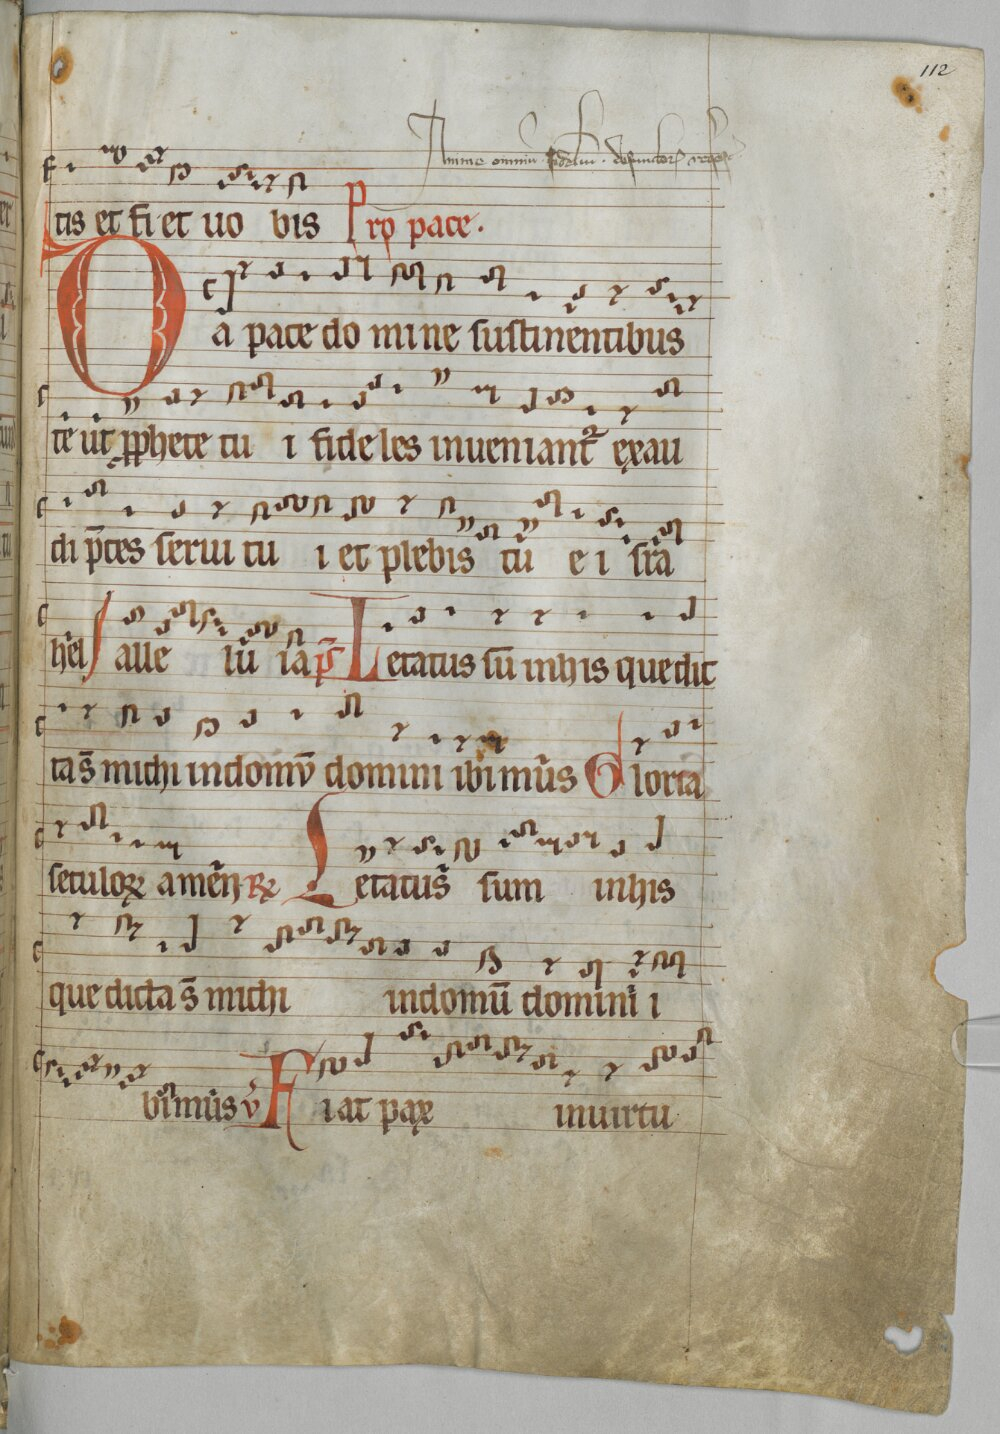 112
Anime omniū fideliū defunctoꝝ
tis et fiet uo bis Pro pace.
Da pace domine sustinentibus
te ut ꝓphete tu i fideles inueniant᷑ exau
di p̄ces serui tui et plebis tū e isra
hel alle lu ia p̄s Letatus sū inhis que dic
ta s̄ michi indomū domini ibimus Gloria
seculoꝝ amen R̄ Letatus sum inhis
que dicta s̄ michi indomū domini i
bimus v̄ Fiat pax inuirtu